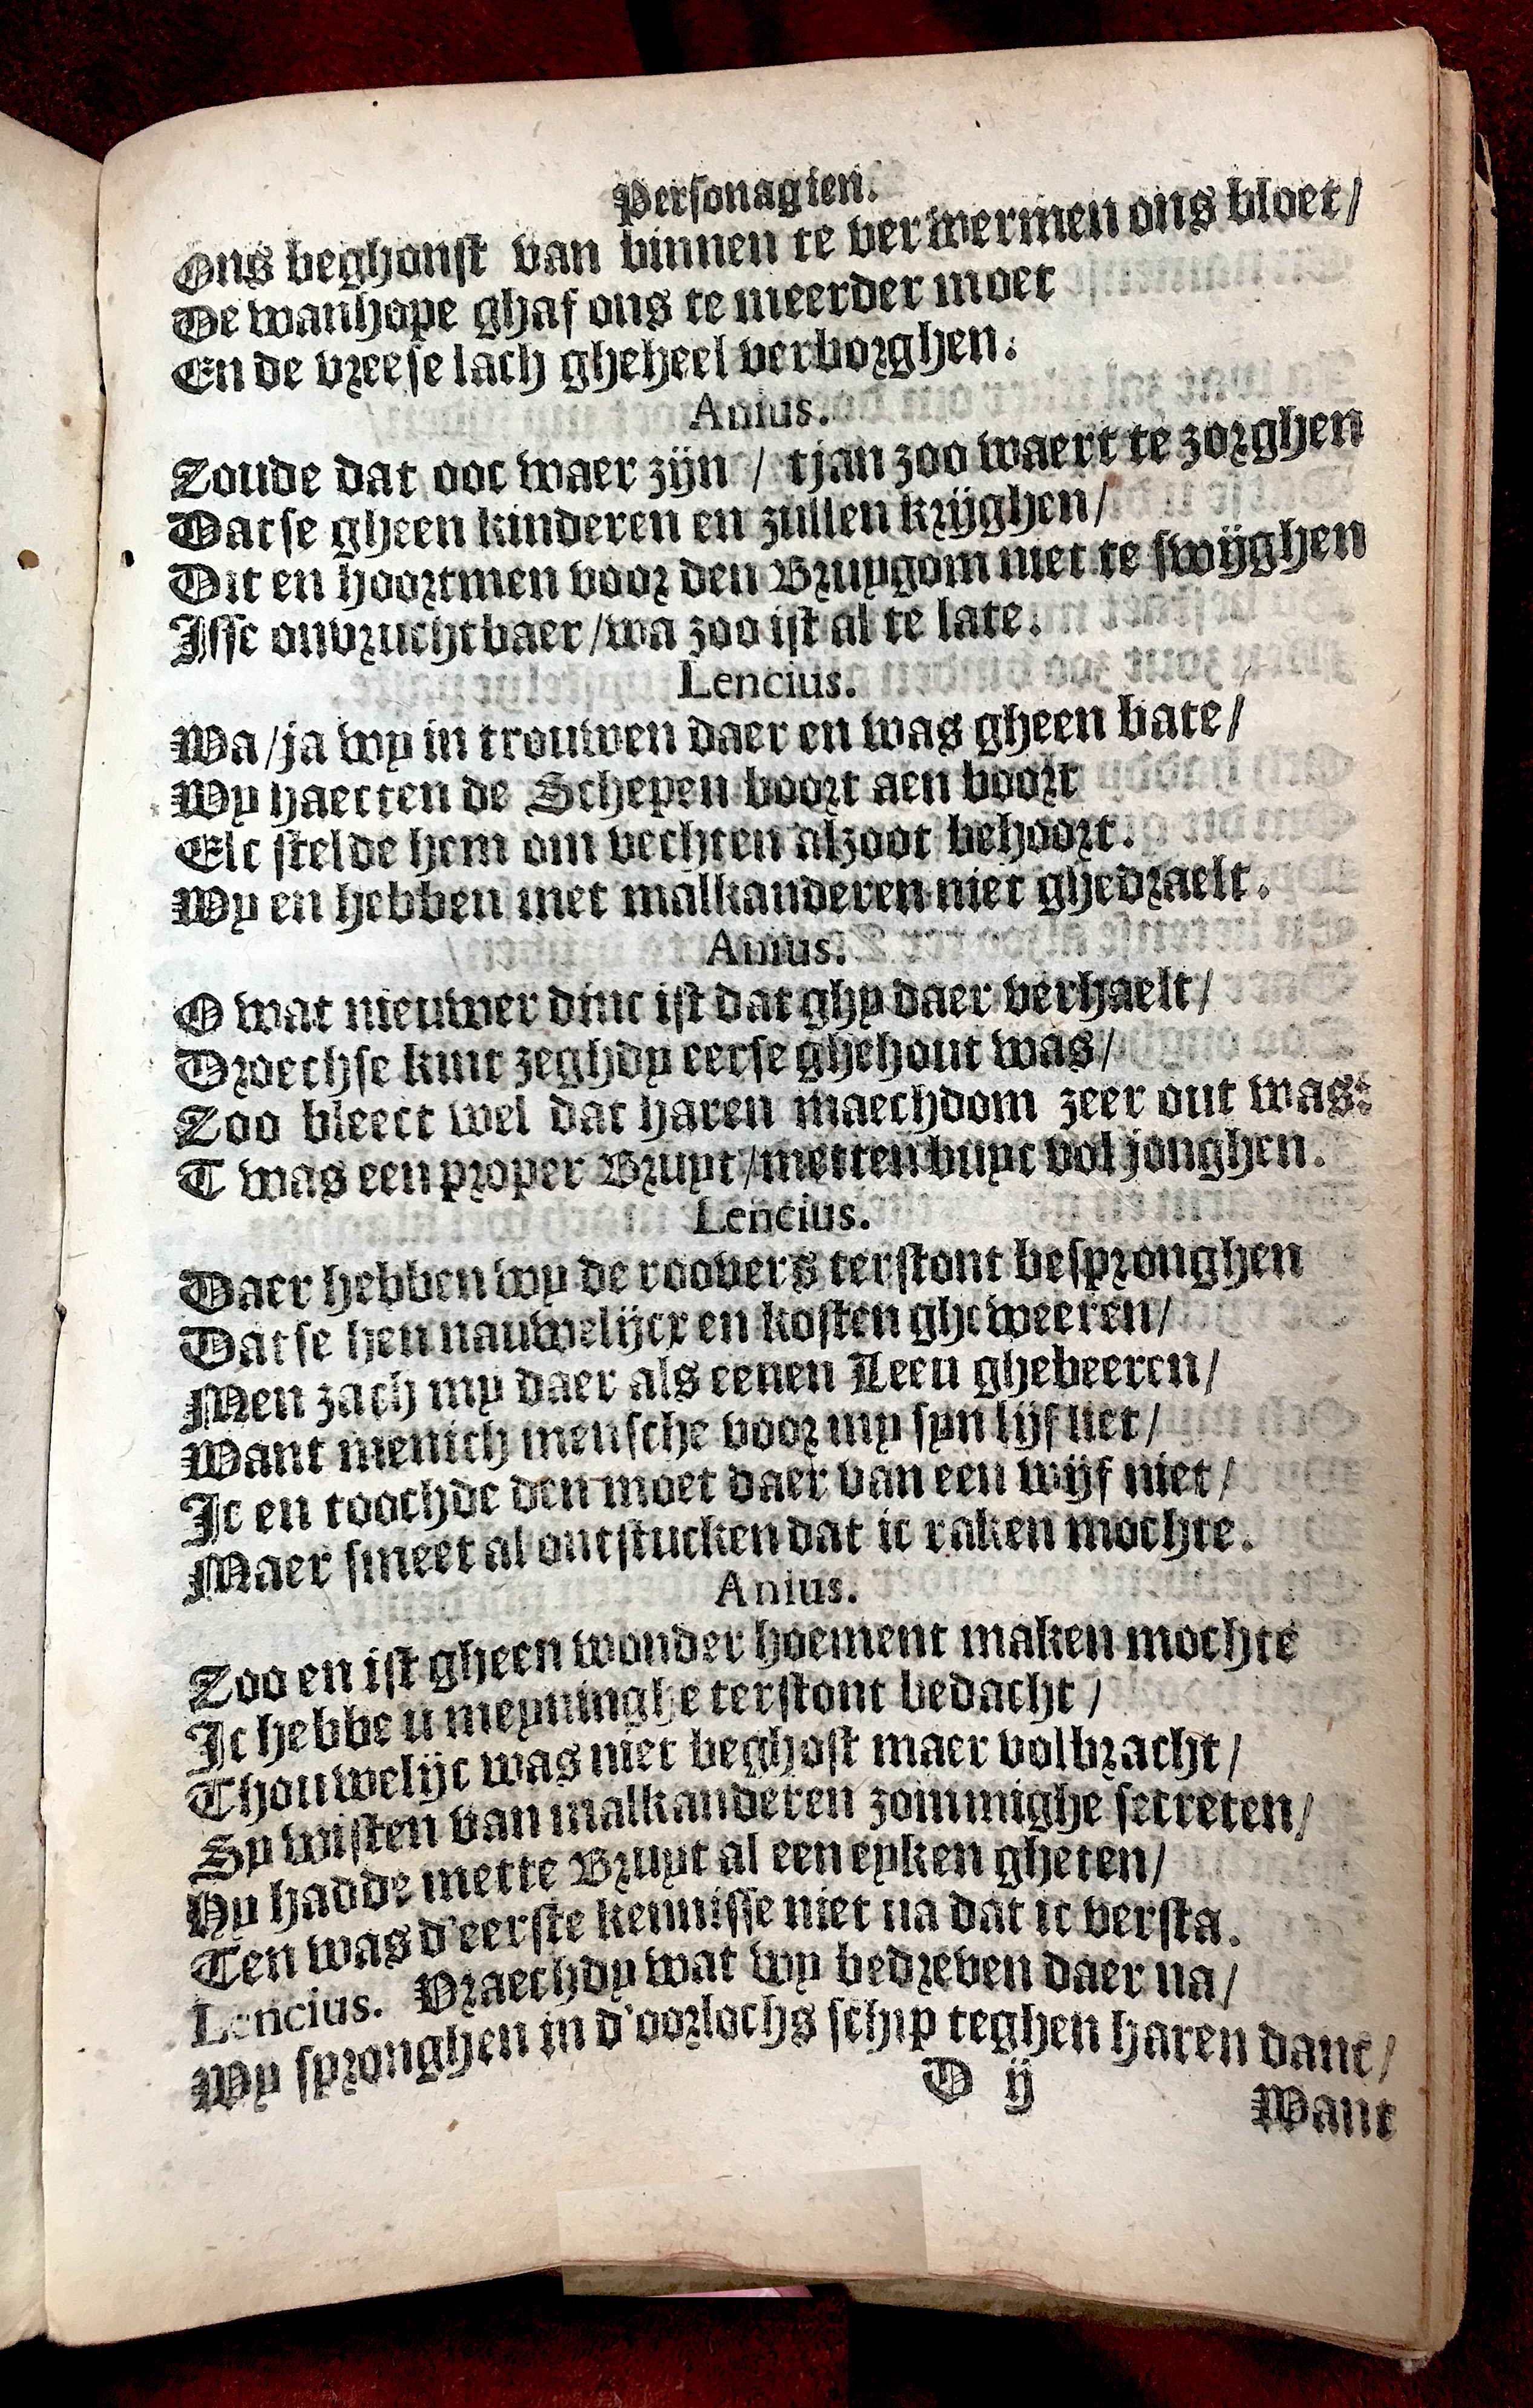 Personagien.
Ons beghonst van binnen te verwermen ons bloet/
De wanhope ghaf ons te meerder moet
En de vreese lach gheheel verborghen.
Anius.
Zoude dat ooc waer zijn / tjan zoo waert te zorghen
Datse gheen kinderen en zullen krijghen/
Dit en hoortmen voor den Bruygom niet te swijghen
Isse onvruchtbaer/wa zoo ist al te late.
Lencius.
Wa/ja wy in trouwen daer en was gheen bate/
Wy haecten de Schepen boort aen boort
Elc stelde hem om vechten alzoot behoort.
Wy en hebben met malkanderen niet ghedraelt.
Anius.
O wat nieuwer dinc ist dat ghy daer verhaelt/
Droechse kint zeghdy eerse ghehout was/
Zoo bleect wel dat haren maechdom zeer out was:
T was een proper Bruyt/metten buyc vol jonghen.
Lencius.
Daer hebben wy de roovers terstont bespronghen
Datse hen nauwelijcx en kosten gheweeren/
Men zach my daer als eenen Leeu ghebeeren/
Want menich mensche voor my syn lijf liet/
Ic en toochde den moet daer van een wijf niet/
Maer smeet al ontstucken dat ic raken mochte.
Anius.
Zoo en ist gheen wonder hoement maken mochte
Ic hebbe u meyninghe terstont bedacht/
Thouwelijc was niet beghost maer volbracht/
Sy wisten van malkanderen zommighe secreten/
Hy hadde mette Bruyt al een eyken gheten/
Ten was d'eerste kennisse niet na dat ic versta.
Lencius. Vraechdy wat wy bedreven daer na/
Wy spronghen in d'oorlochs schip teghen haren danc/
D ij
Want